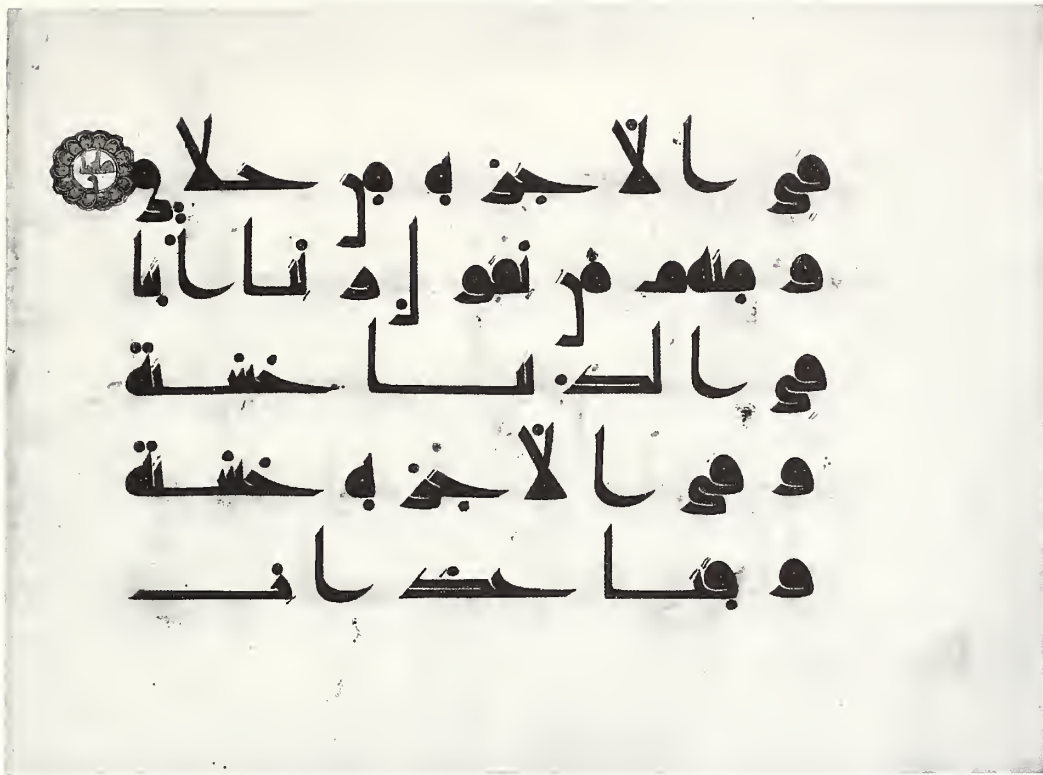 في الاخرة من خلاق
ومنهم من يقول ربنا اتنا
في الدنيا حسنة
وفي الاخرة حسنة
وقنا عذاب